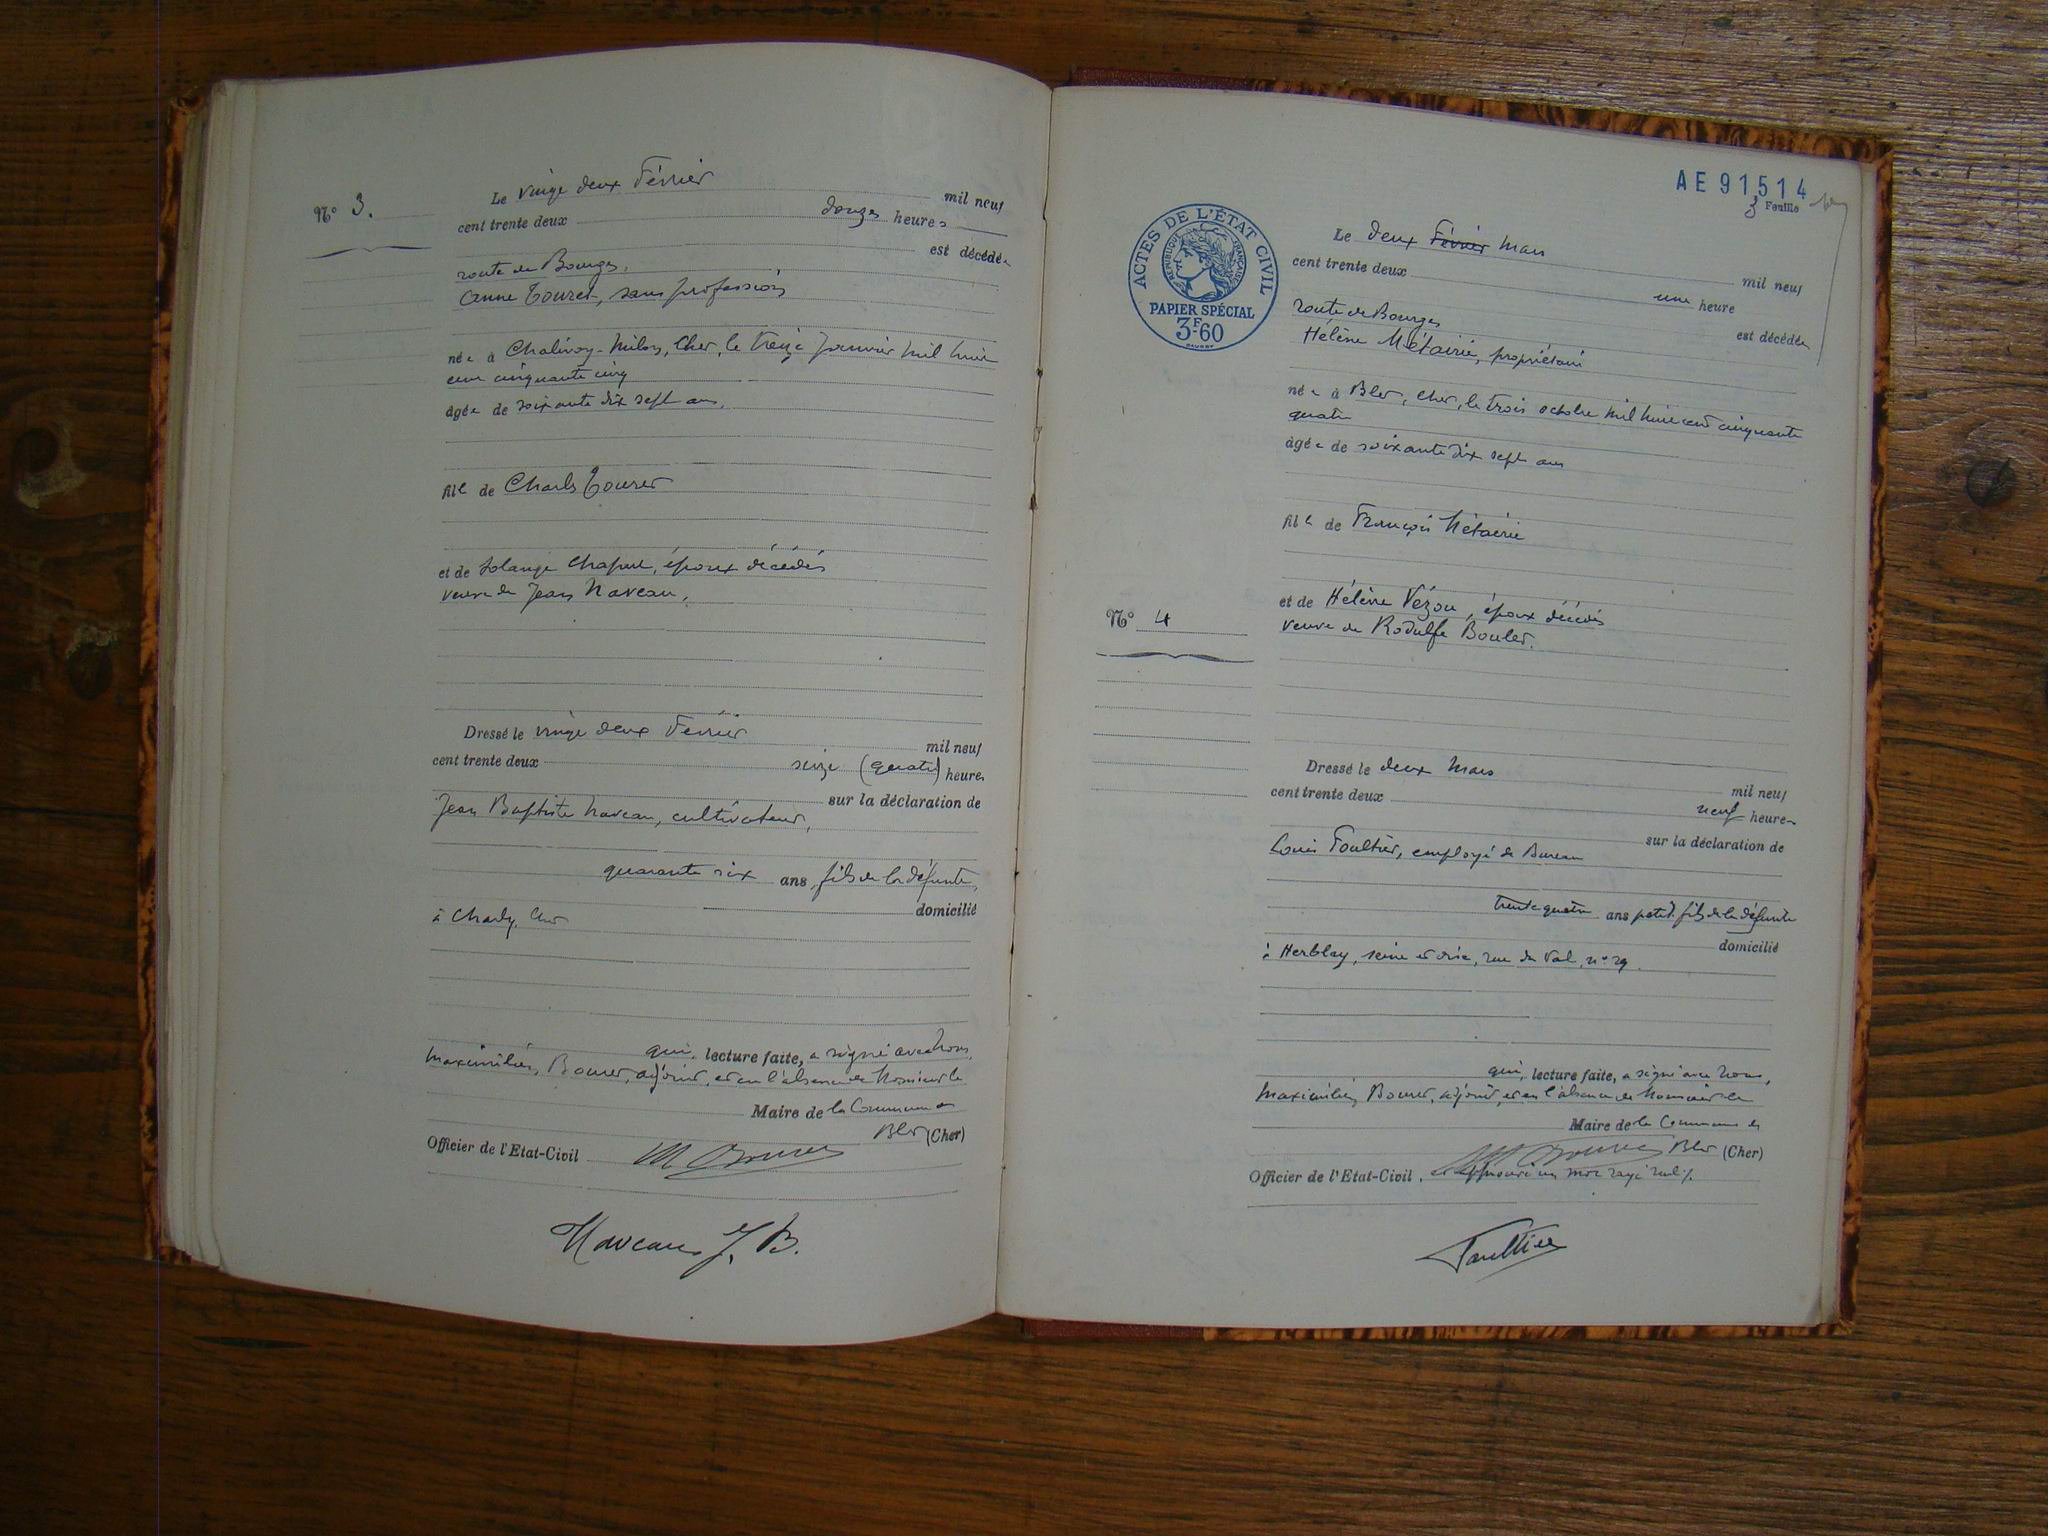 N° 3.
Le vingt deux Février mil neuf
cent trente deux douze heures
est décédée
route de Bourges,
Anne Touret, sans profession
née à Chalivoy-Milon, Cher, le treize janvier mil huit
cent cinquante cinq
âgée de soixante dix sept ans,
fille de Charles Touret
et de Solange Chaput, époux décédés
veuve de Jean Naveau,
Dressé le vingt deux Février mil neuf
cent trente deux seize (quatre) heures
sur la déclaration de
Jean Baptiste Naveau, cultivateur,
quarante six ans, fils de la défunte,
domicilié
à Charly, Cher
qui, lecture faite, a signé avec Nous,
Maximilien Bourer, adjoint, et en l'absence de Monsieur le
Maire de la Commune de
Blet (Cher)
Officier de l'Etat-Civil
Naveau J. B.
AE 91514
3 Feuille
ACTES DE L'ÉTAT CIVIL
RÉPUBLIQUE FRANÇAISE
PAPIER SPÉCIAL
3F.60
N° 4
Le deux Février Mars
mil neuf
cent trente deux
une heure
est décédée
route de Bourges
Hélène Métairie, propriétaire
née à Blet, Cher, le trois octobre mil huit cent cinquante
quatre
âgée de soixante dix sept ans
fille de François Métairie
et de Hélène Vézon, époux décédés
veuve de Rodolfe Boulet.
Dressé le deux Mars
mil neuf
cent trente deux neuf heures
sur la déclaration de
Louis Foultier, employé de Bureau
trente quatre ans petit fils de la défunte
domicilié
à Herblay, Seine et Oise, rue du Val, n° 29.
qui, lecture faite, a signé avec Nous,
Maximilien Bourer, adjoint, et en l'absence de Monsieur le
Maire de la Commune de
Blet (Cher)
Officier de l'Etat-Civil. et approuvé un mot rayé nul
Foultier